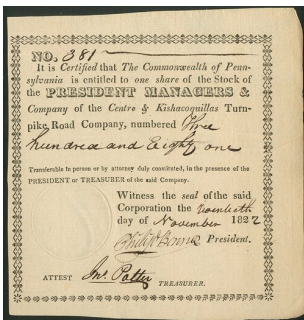 NO. 381
It is Certified that The Commonwealth of Penn-
sylvania is entitled to one share of the Stock of
the PRESIDENT MANAGERS &
Company of the Centre & Kishacoquillas Turn-
pike Road Company, numbered Three
hundred and Eighty one
Transferable in person or by attorney duly constituted, in the presence of the
PRESIDENT or TREASURER of the said Company.
Witness the seal of the said
Corporation the twentieth
day of November 1822
President.
ATTEST Jno. Potter
TREASURER.